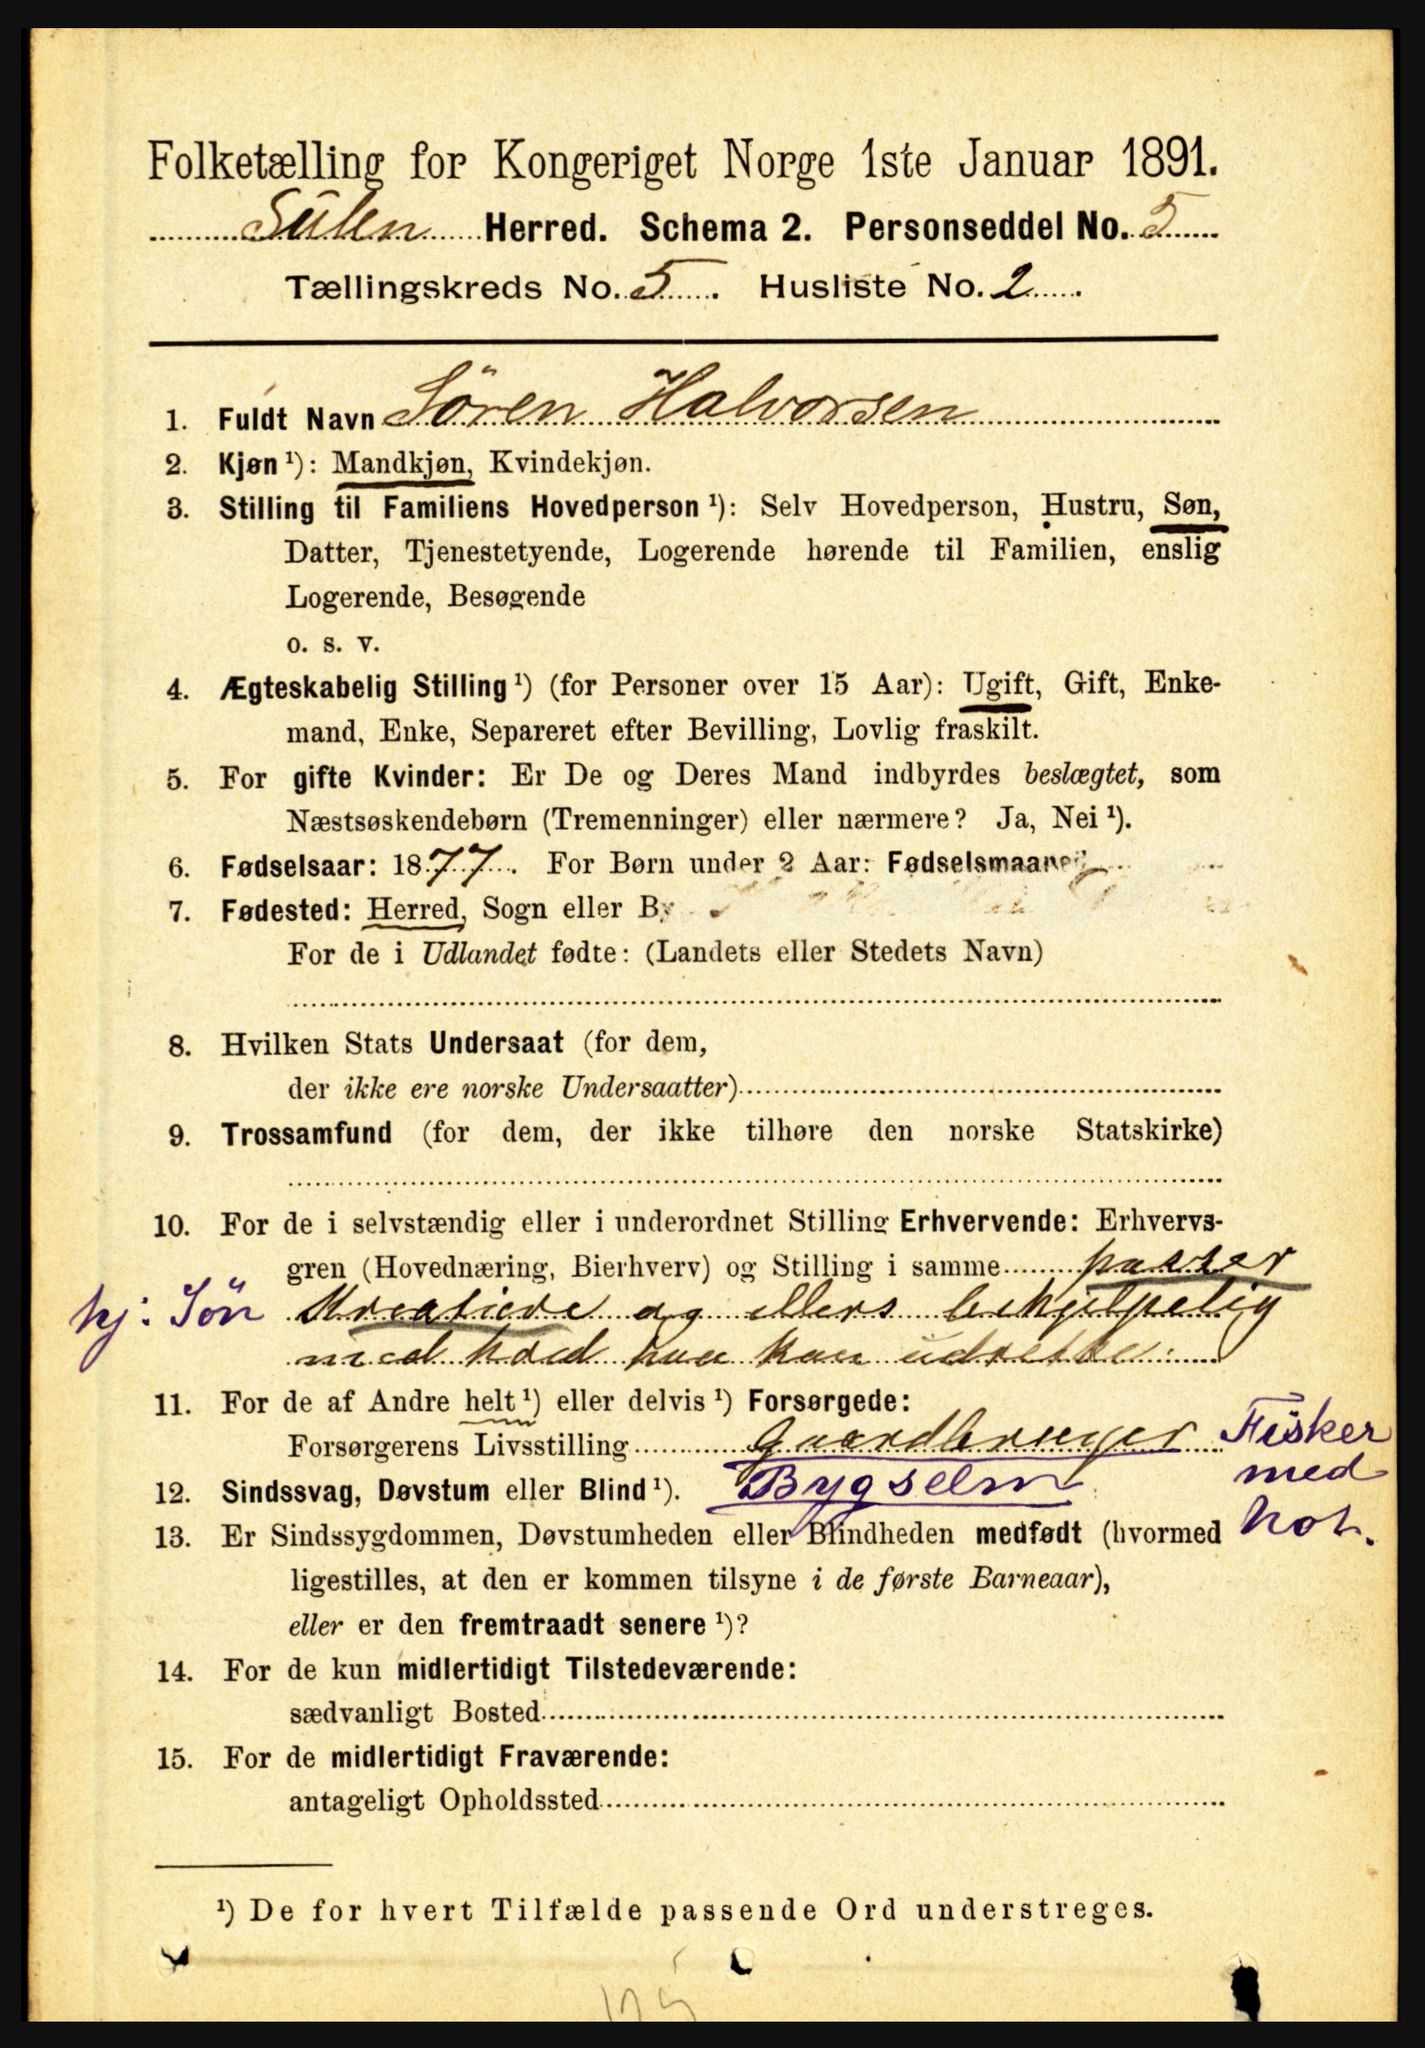 Folketælling for Kongeriget Norge 1ste Januar 1891.
Sulen Herred. Schema 2. Personseddel No. 5
Tællingskreds No. 5. Husliste No. 2
1. Fuldt Navn Sören Halvorsen
2. Kjøn ¹): Mandkjøn, Kvindekjøn.
3. Stilling til Familiens Hovedperson ¹): Selv Hovedperson, Hustru, Søn,
Datter, Tjenestetyende, Logerende hørende til Familien, enslig
Logerende, Besøgende
o. s. v.
4. Ægteskabelig Stilling ¹) (for Personer over 15 Aar): Ugift, Gift, Enke-
mand, Enke, Separeret efter Bevilling, Lovlig fraskilt.
5. For gifte Kvinder: Er De og Deres Mand indbyrdes beslægtet, som
Næstsøskendebørn (Tremenninger) eller nærmere? Ja, Nei ¹).
6. Fødselsaar: 1877. For Børn under 2 Aar: Fødselsmaaned
7. Fødested: Herred, Sogn eller By
For de i Udlandet fødte: (Landets eller Stedets Navn)
8. Hvilken Stats Undersaat (for dem,
der ikke ere norske Undersaatter)
9. Trossamfund (for dem, der ikke tilhøre den norske Statskirke)
10. For de i selvstændig eller i underordnet Stilling Erhvervende: Erhvervs-
gren (Hovednæring, Bierhverv) og Stilling i samme passer
hj: Sön Kreatiere og ellers behjelpelig
med hvad han kan udrette.
11. For de af Andre helt ¹) eller delvis ¹) Forsørgede:
Forsørgerens Livsstilling Gaardbruger Fisker
12. Sindssvag, Døvstum eller Blind ¹). Bygselm med
13. Er Sindssygdommen, Døvstumheden eller Blindheden medfødt (hvormed Not.
ligestilles, at den er kommen tilsyne i de første Barneaar),
eller er den fremtraadt senere ¹)?
14. For de kun midlertidigt Tilstedeværende:
sædvanligt Bosted
15. For de midlertidigt Fraværende:
antageligt Opholdssted
¹) De for hvert Tilfælde passende Ord understreges.